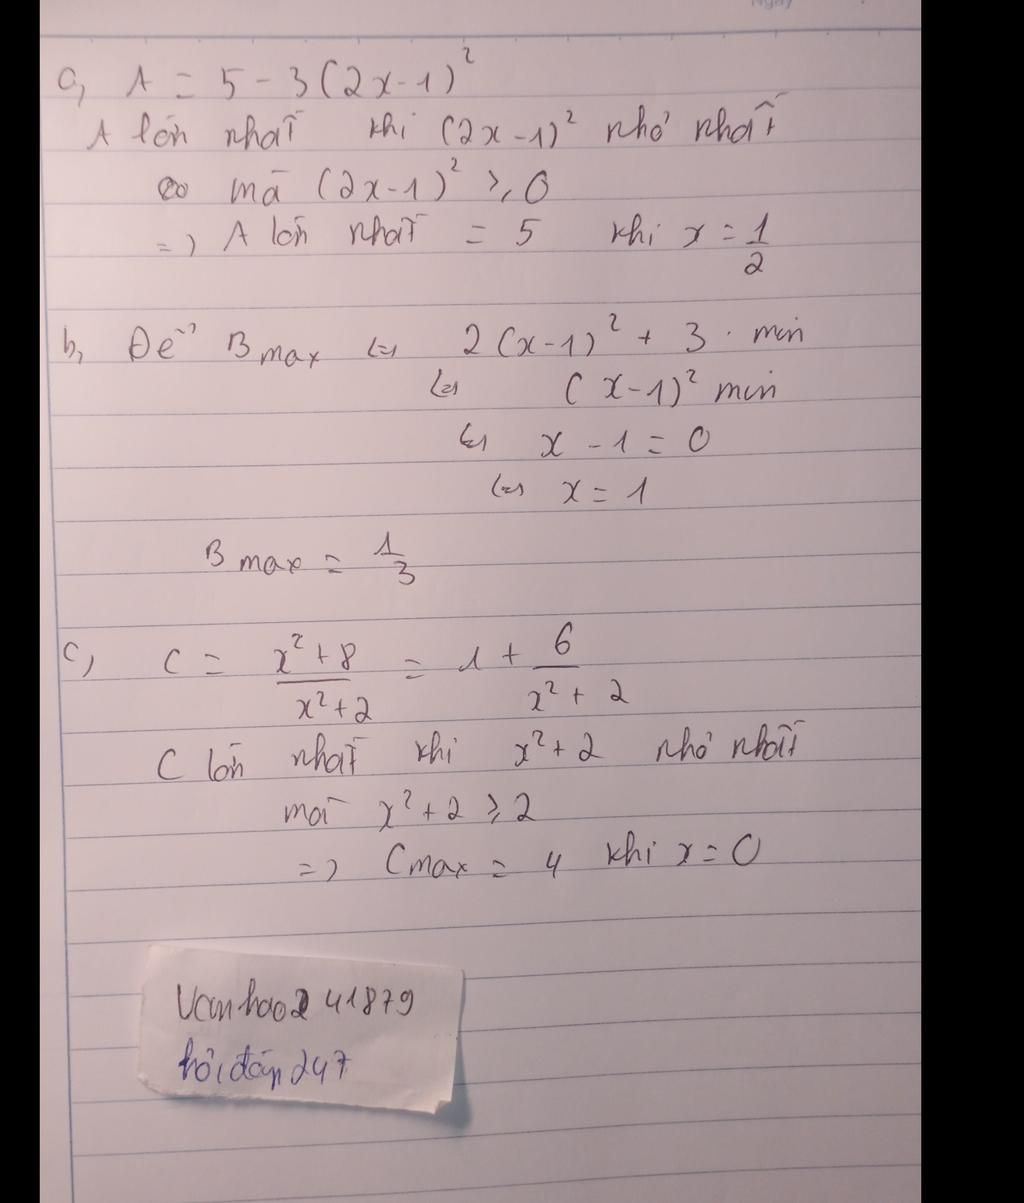 a, A = 5 - 3(2x-1)²
A lớn nhất khi (2x-1)² nhỏ nhất
mà (2x-1)² ≥ 0
=> A lớn nhất = 5 khi x = 1/2
b, Để B max <=> 2(x-1)² + 3 . min
<=> (x-1)² min
<=> x - 1 = 0
<=> x = 1
B max = 1/3
c, C = x²+8/x²+2 = 1 + 6/x²+2
C lớn nhất khi x²+2 nhỏ nhất
mà x²+2 ≥ 2
=> Cmax = 4 khi x = 0
Vanhao241879
hỏi đáp 247